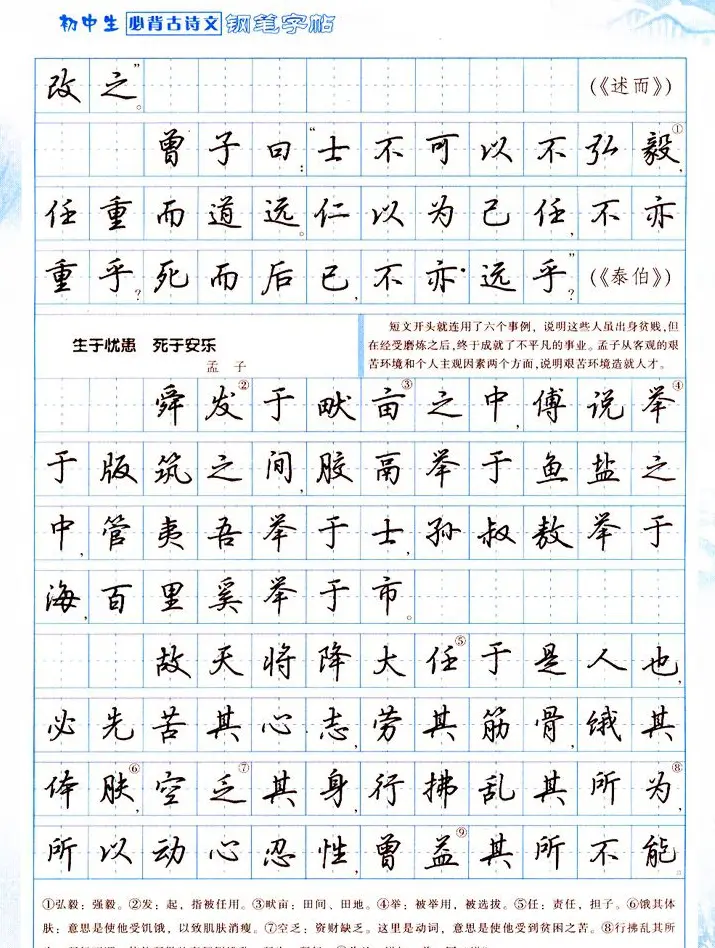 初中生 必背古诗文 钢笔字帖
改之”。 (《述而》)
曾子曰：“士不可以不弘毅①，
任重而道远。仁以为己任，不亦
重乎？死而后已，不亦远乎？” (《泰伯》)
生于忧患 死于安乐
孟 子
短文开头就连用了六个事例，说明这些人虽出身贫贱，但
在经受磨炼之后，终于成就了不平凡的事业。孟子从客观的艰
苦环境和个人主观因素两个方面，说明艰苦环境造就人才。
舜发②于畎亩③之中，傅说举④
于版筑之间，胶鬲举于鱼盐之
中，管夷吾举于士，孙叔敖举于
海，百里奚举于市。
故天将降大任⑤于是人也，
必先苦其心志，劳其筋骨，饿其
体肤⑥，空乏⑦其身，行拂乱其所为⑧，
所以动心忍性，曾益⑨其所不能。
①弘毅：强毅。②发：起，指被任用。③畎亩：田间、田地。④举：被举用，被选拔。⑤任：责任，担子。⑥饿其体
肤：意思是使他受饥饿，以致肌肤消瘦。⑦空乏：资财缺乏。这里是动词，意思是使他受到贫困之苦。⑧行拂乱其所